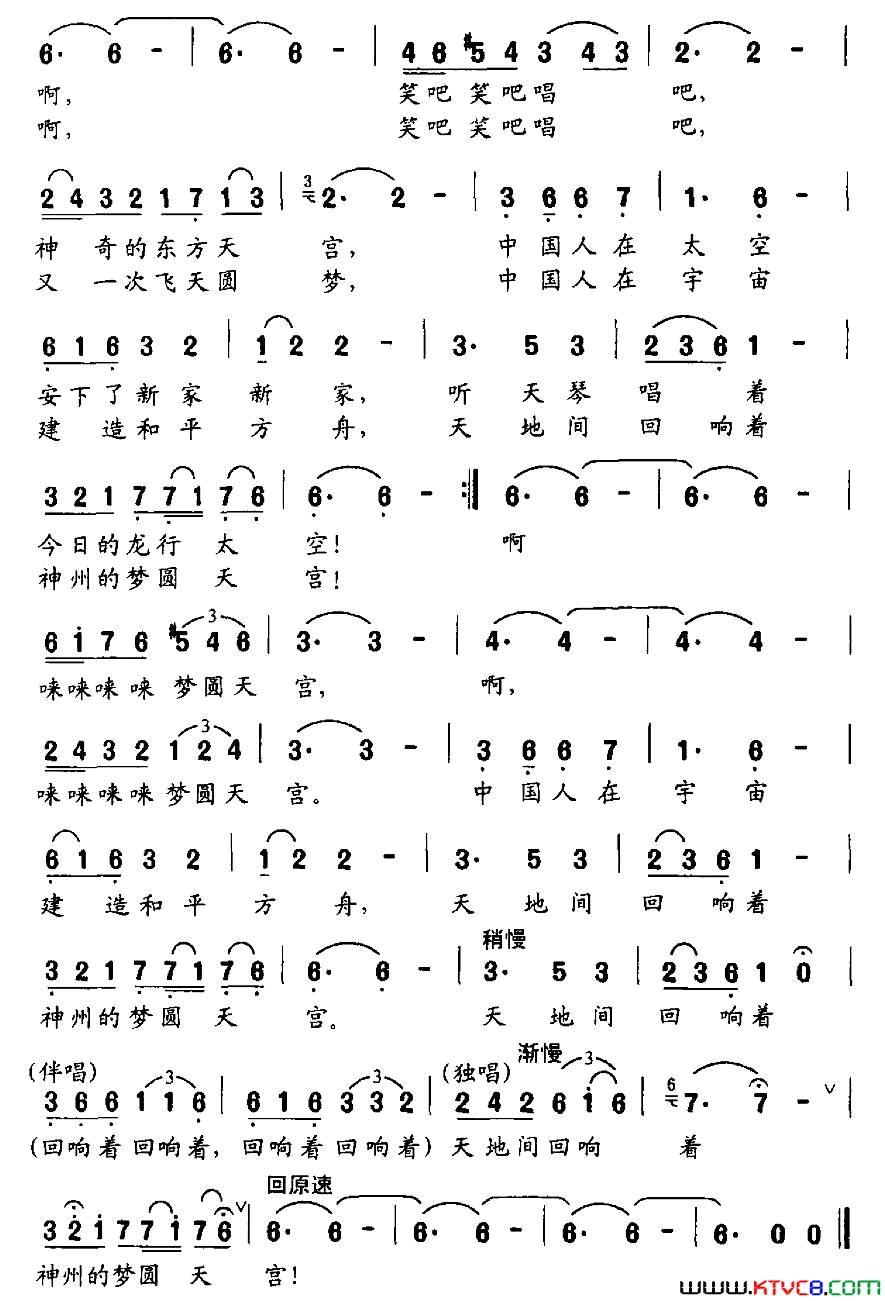 6· 6 - | 6· 6 - | 4 6 #5 4 3 4 3 | 2· 2 - |
啊， 笑吧 笑吧唱 吧，
啊， 笑吧 笑吧唱 吧，
2 4 3 2 1 7 1 3 | 3 2· 2 - | 3 6 6 7 | 1· 6 - |
神 奇的东方天 宫， 中国人在 太 空
又 一次飞天圆 梦， 中国人在 宇 宙
6 1 6 3 2 | 1 2 2 - | 3· 5 3 | 2 3 6 1 - |
安下了新家 新 家， 听 天琴 唱 着
建 造和平 方 舟， 天 地间 回 响着
3 2 1 7 7 1 7 6 | 6· 6 - :| 6· 6 - | 6· 6 - |
今日的龙行 太 空！ 啊
神州的梦圆 天 宫！
6 i 7 6 #5 4 6 | 3· 3 - | 4· 4 - | 4· 4 - |
唻唻唻唻 梦圆天 宫， 啊，
2 4 3 2 1 2 4 | 3· 3 - | 3 6 6 7 | 1· 6 - |
唻唻唻唻 梦圆天 宫。 中国人在 宇 宙
6 1 6 3 2 | 1 2 2 - | 3· 5 3 | 2 3 6 1 - |
建 造和平 方 舟， 天 地间 回 响着
稍慢
3 2 1 7 7 1 7 6 | 6· 6 - | 3· 5 3 | 2 3 6 1 0 |
神州的梦圆 天 宫。 天 地间 回 响着
(伴唱) (独唱) 渐慢
3 6 6 1 1 6 | 6 1 6 3 3 2 | 2 4 2 6 i 6 | 6 7· 7 - ∨ |
(回响着 回响着，回响着 回响着) 天地间回响 着
回原速
3 2 i 7 7 i 7 6 ∨ | 6· 6 - | 6· 6 - | 6· 6 - | 6· 0 0 ‖
神州的梦圆 天 宫！
www.KTVC8.com